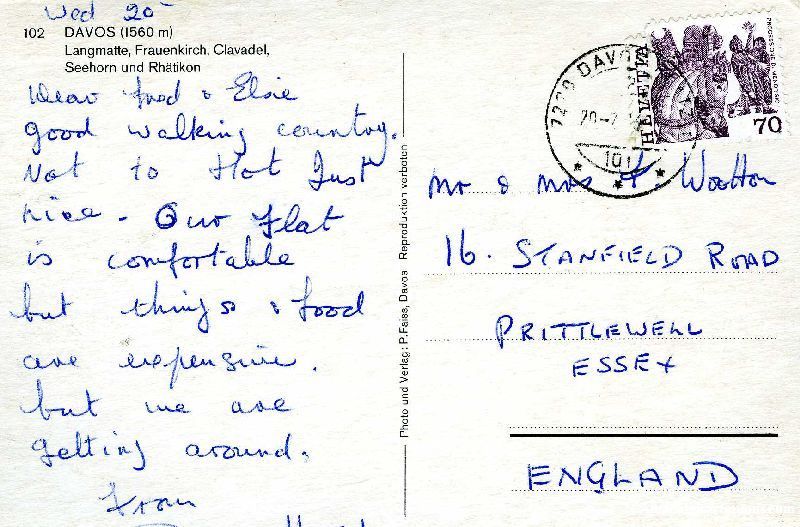 Wed 20
102 DAVOS (1560 m)
Langmatte, Frauenkirch, Clavadel,
Seehorn und Rhätikon
Dear Fred & Elsie
good walking country.
Not to Hot Just
nice - Our flat
is comfortable
but things & food
are expensive.
but we are
getting around.
From
Photo und Verlag: P. Faiss, Davos Reproduktion verboten
7270 DAVOS
20-7
HELVETIA
70
Mr & Mrs F. Wootton
16. STANFIELD ROAD
PRITTLEWELL
ESSEX
ENGLAND